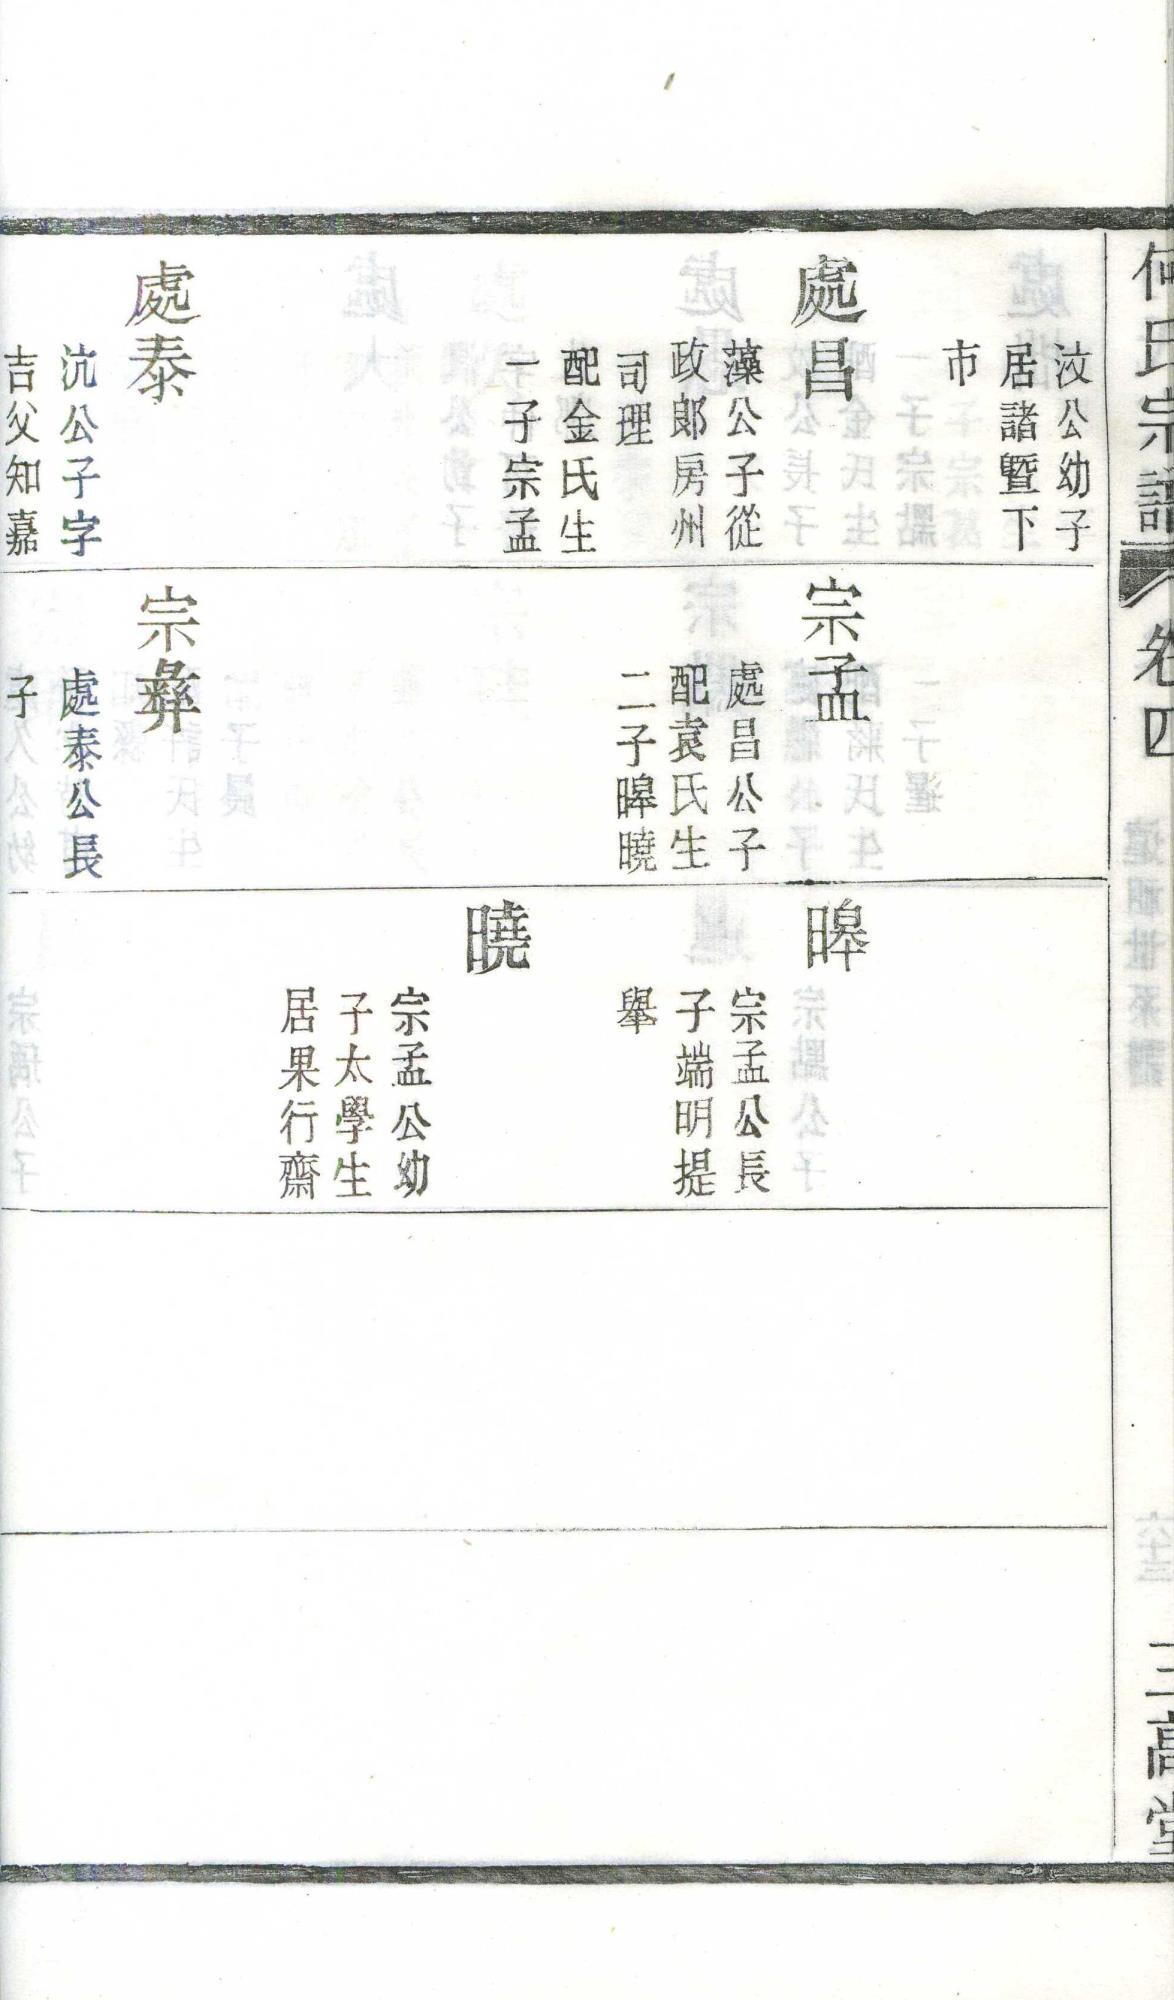 何氏宗譜
卷四
三高堂
汶公幼子
居諸暨下
市
處昌
藻公子從
政郎房州
司理
配金氏生
一子宗孟
處泰
沆公子字
吉父知嘉
宗孟
處昌公子
配袁氏生
二子皥曉
宗彝
處泰公長
子
皥
宗孟公長
子端明提
舉
曉
宗孟公幼
子太學生
居果行齋